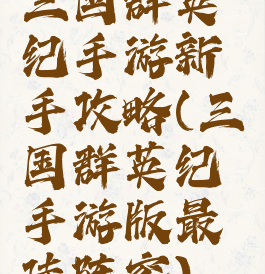 三国群英
纪手游新
手攻略(三
国群英纪
手游版最
强阵容)